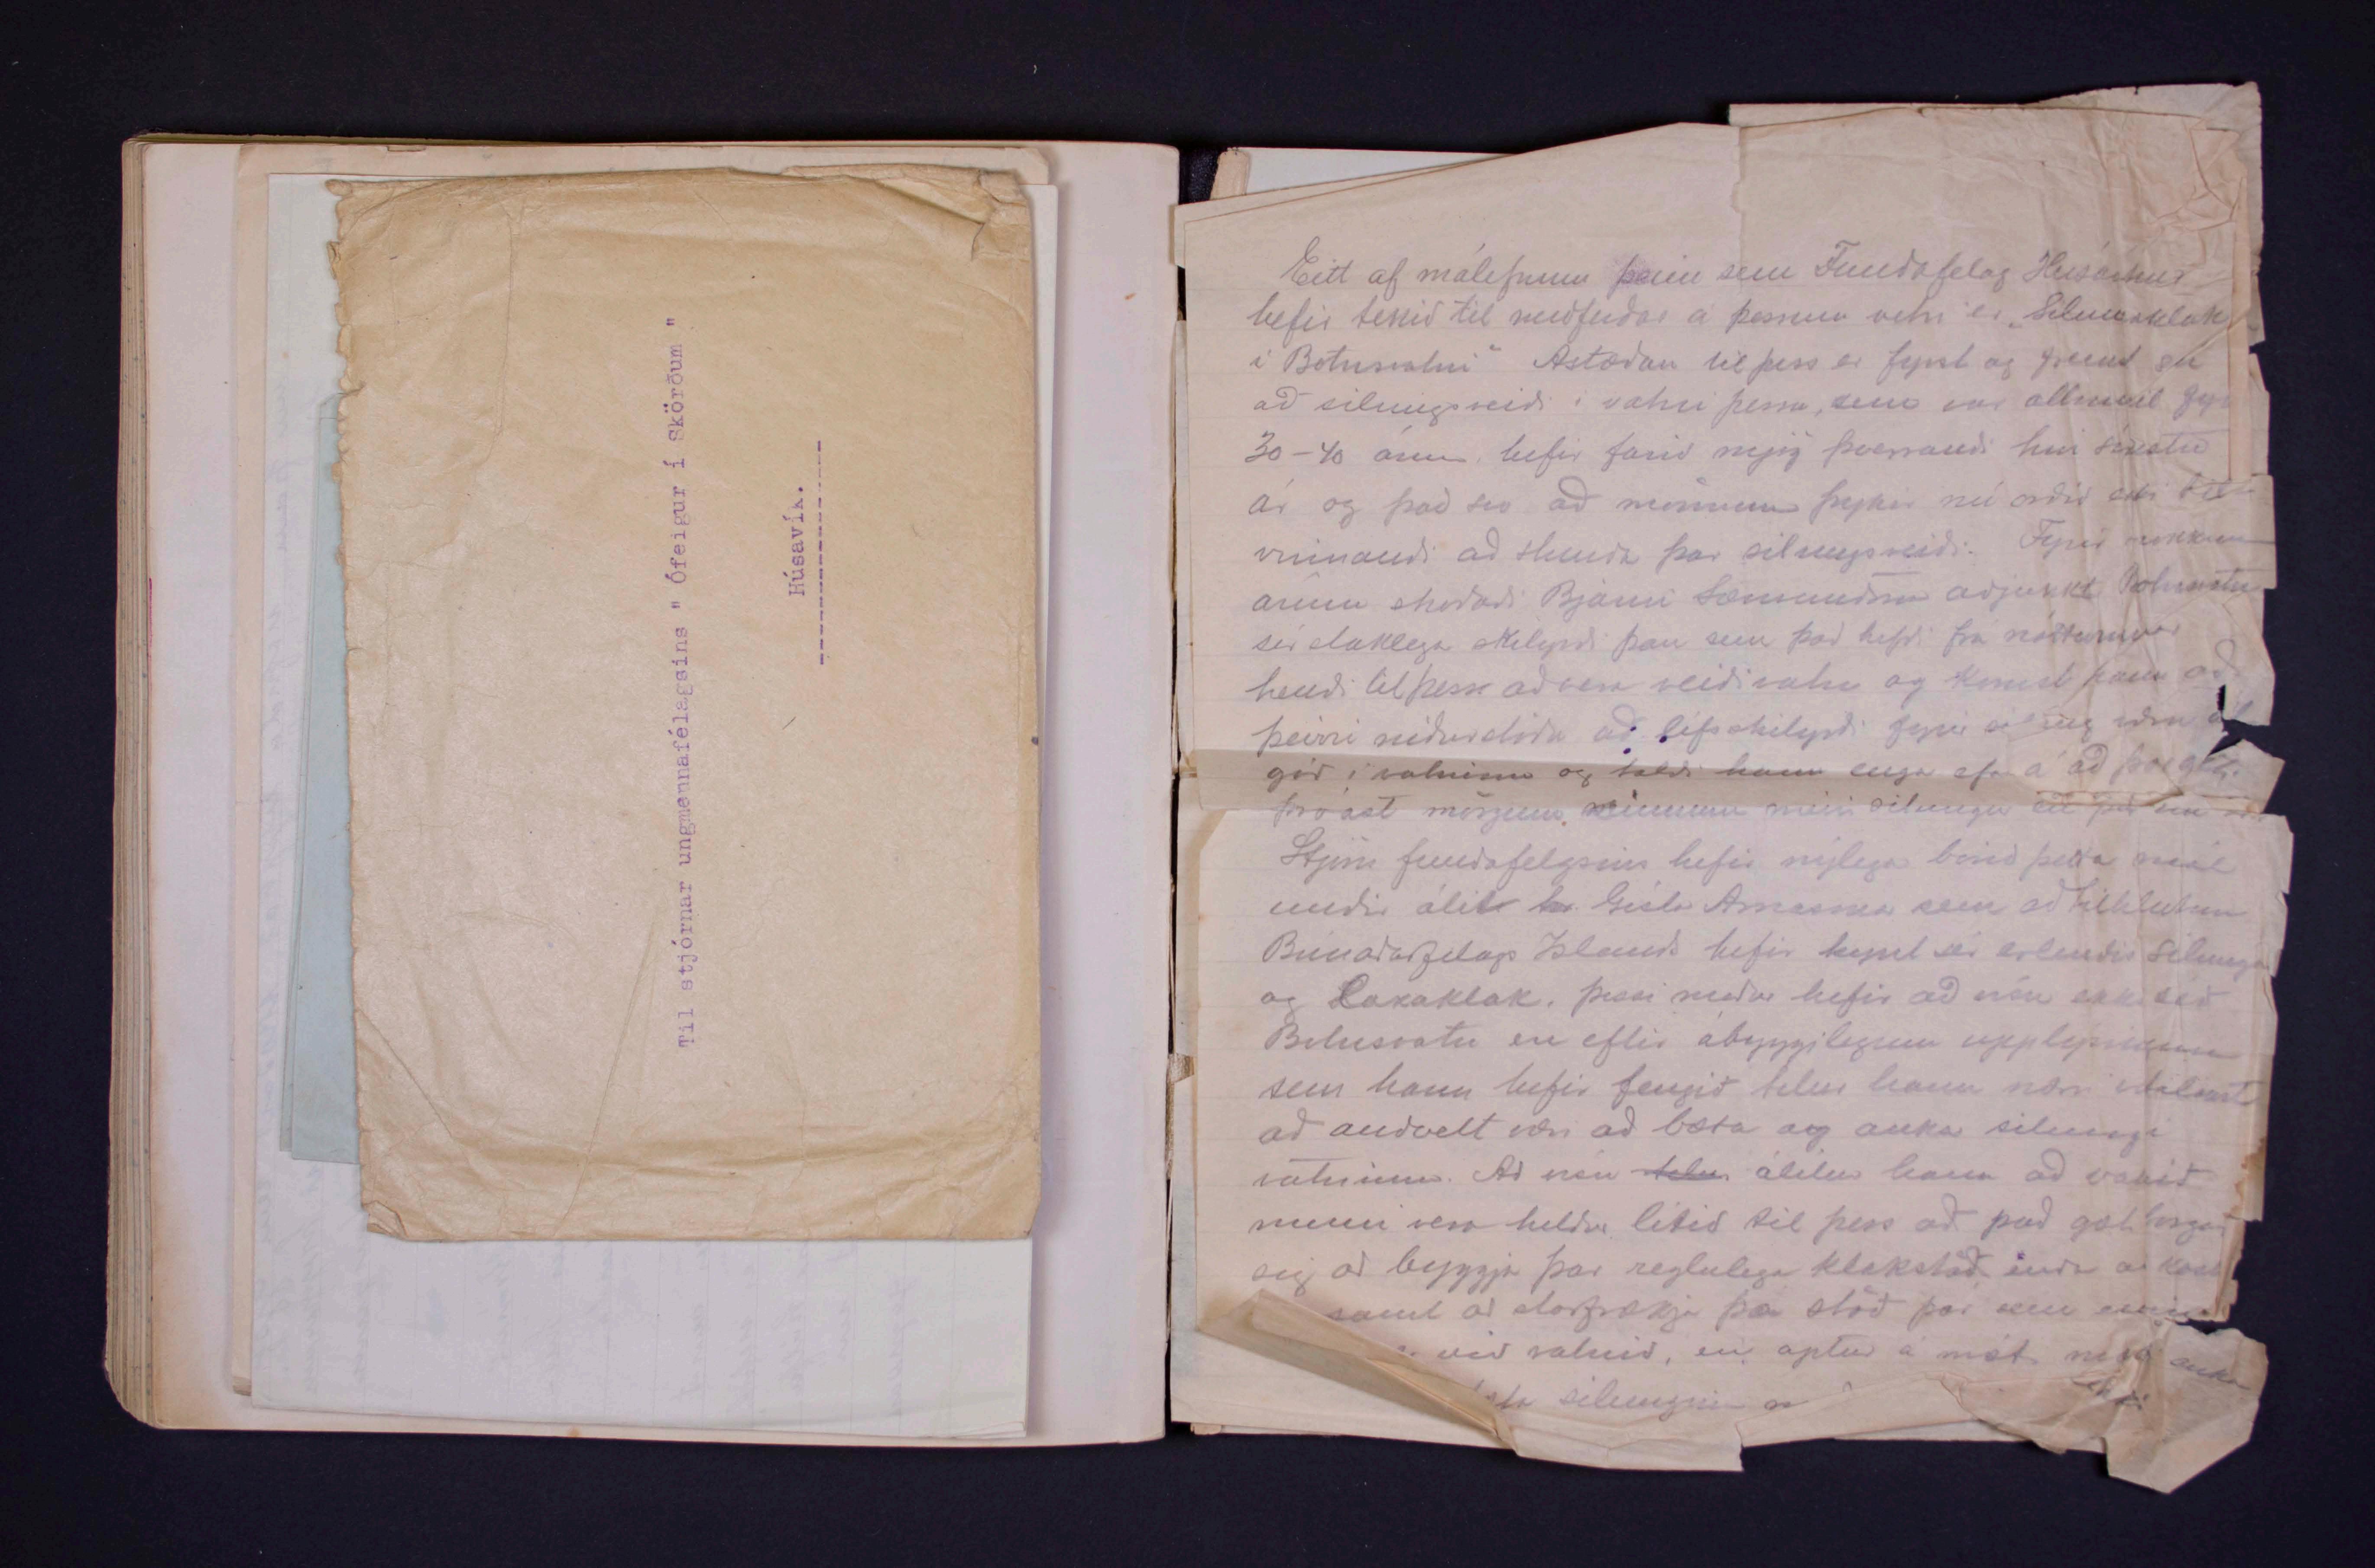 Til stjórnar ungmennafélagsins " Ófeigur í Skörðum "
Húsavík.
Eitt af málefnum þeim sem Fundafelag Húsavíkur
hefir tekið til meðferðar á þessum vetri er „Silungaklak
í Botnsvatni“ Astæðan til þess er fyrst og fremst
að silungsveiði í vatni þessu, sem var allmikil fyr
30-40 árum, hefir farið mjög þverrandi hin síðustu
ár og það svo að mönnum þykir nú orðið ekki
vinnandi að stunda þar silungsveiði. Fyrir nokkrum
árum skoðaði Bjarni Sæmundsson adjunkt Botnsvatn
sérstaklega skilyrði þau sem það hefði frá náttúrunnar
hendi til þess að vera veiðivatn og komst hann að
þeirri niðurstöðu að lífsskilyrði fyrir silung væru
góð í vatninu og taldi hann engan efa á að þar gæti
þróast mörgum sinnum meiri silungur en þar
Stjórn fundafelgsins hefir nýlega borið þetta mál
undir álit hr. Gísla Arnasonar sem að tilhlutun
Búnaðarfelags Islands hefir kynt sér erlendis silunga
og Laxaklak. þessi maður hefir að vísu ekki séð
Botnsvatn en eftir ábyggilegum upplýsingum
sem hann hefir fengið telur hann
að auðvelt væri að bæta og auka silungi
vatninu. Að vísu telur álitur hann að vatnið
muni vera heldur lítið til þess að það gæti borgað
sig að byggja þar reglulega klakstöð, enda
samt að starfrækja þá stöð þar sem
við vatnið, en aptur á móti auka
silunginn